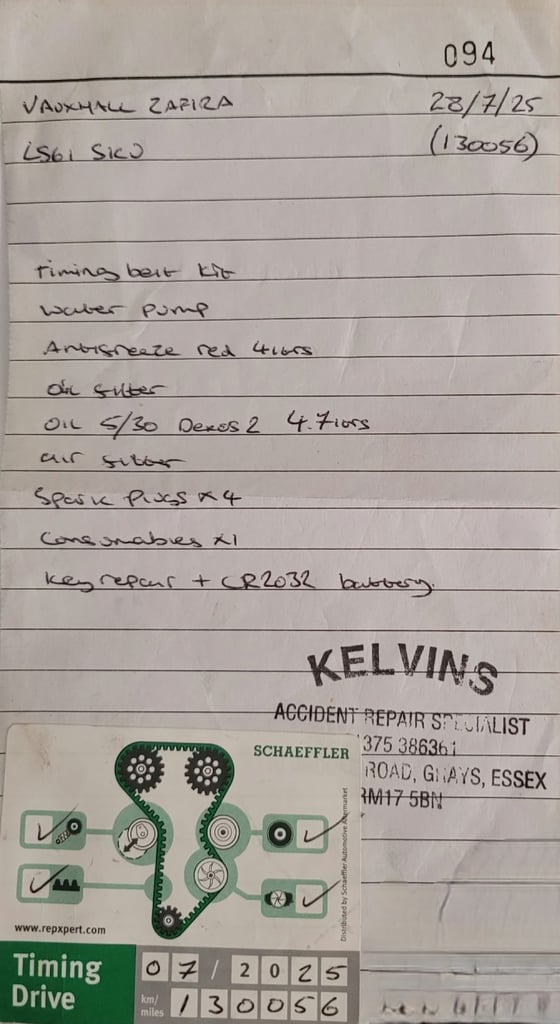 094
VAUXHALL ZAFIRA 28/7/25
LS61 SKU (130056)
timing belt kit
water pump
Antifreeze red 4ltrs
oil filter
OIL 5/30 Dexos2 4.7ltrs
air filter
Spark Plugs x4
Consumables x1
Key repair + CR2032 battery.
KELVINS
ACCIDENT REPAIR SPECIALIST
375 386361
ROAD, GRAYS, ESSEX
RM17 5BN
SCHAEFFLER
Distributed by Schaeffler Automotive Aftermarket
www.repxpert.com
Timing Drive
07/2025
km/miles
130056